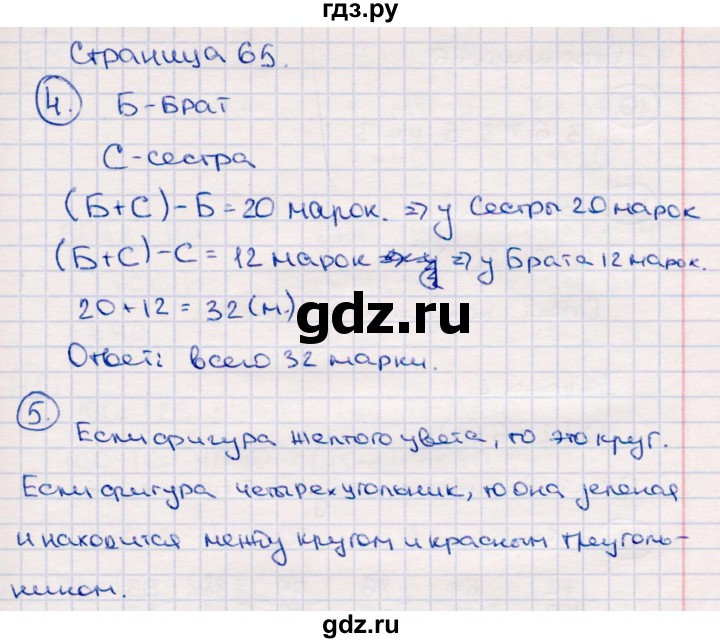 гдз.ру
Страница 65.
4. Б-Брат
С-сестра
(Б+С)-Б=20 марок. => у Сестры 20 марок
(Б+С)-С = 12 марок => у Брата 12 марок.
20+12 = 32 (м.)
gdz.ru
Ответ: всего 32 марки.
5.
Если фигура желтого цвета, то это круг.
Если фигура четырехугольник, то она зеленая
и находится между кругом и красным треуголь-
ником.
gdz.ru